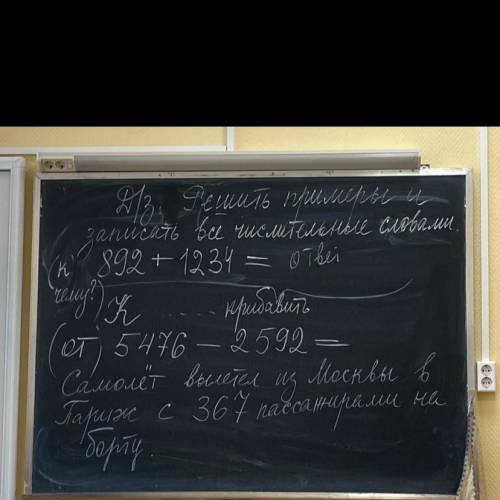 Д/з. Решить примеры и
записать все числительные словами.
(к чему?) 892 + 1234 = ответ
К ..... прибавить
(от) 5476 - 2592 =
Самолёт вылетел из Москвы в
Париж с 367 пассажирами на
борту.